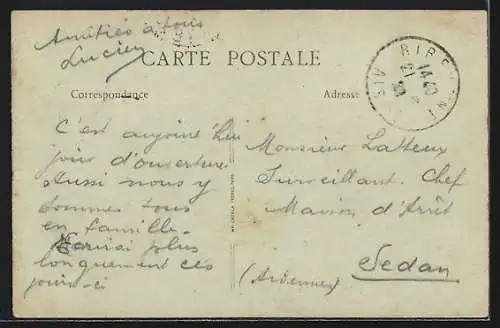 Amitiés à tous
Lucien
CARTE POSTALE
Correspondance
Adresse
14 40
21
C'est aujourd'hui
jour d'ouverture
Aussi nous y
sommes tous
en famille.
Ecrirai plus
longuement ces
jours-ci
Monsieur Latteux
Surveillant Chef
Maison d'Arrêt
Sedan
(Ardennes)